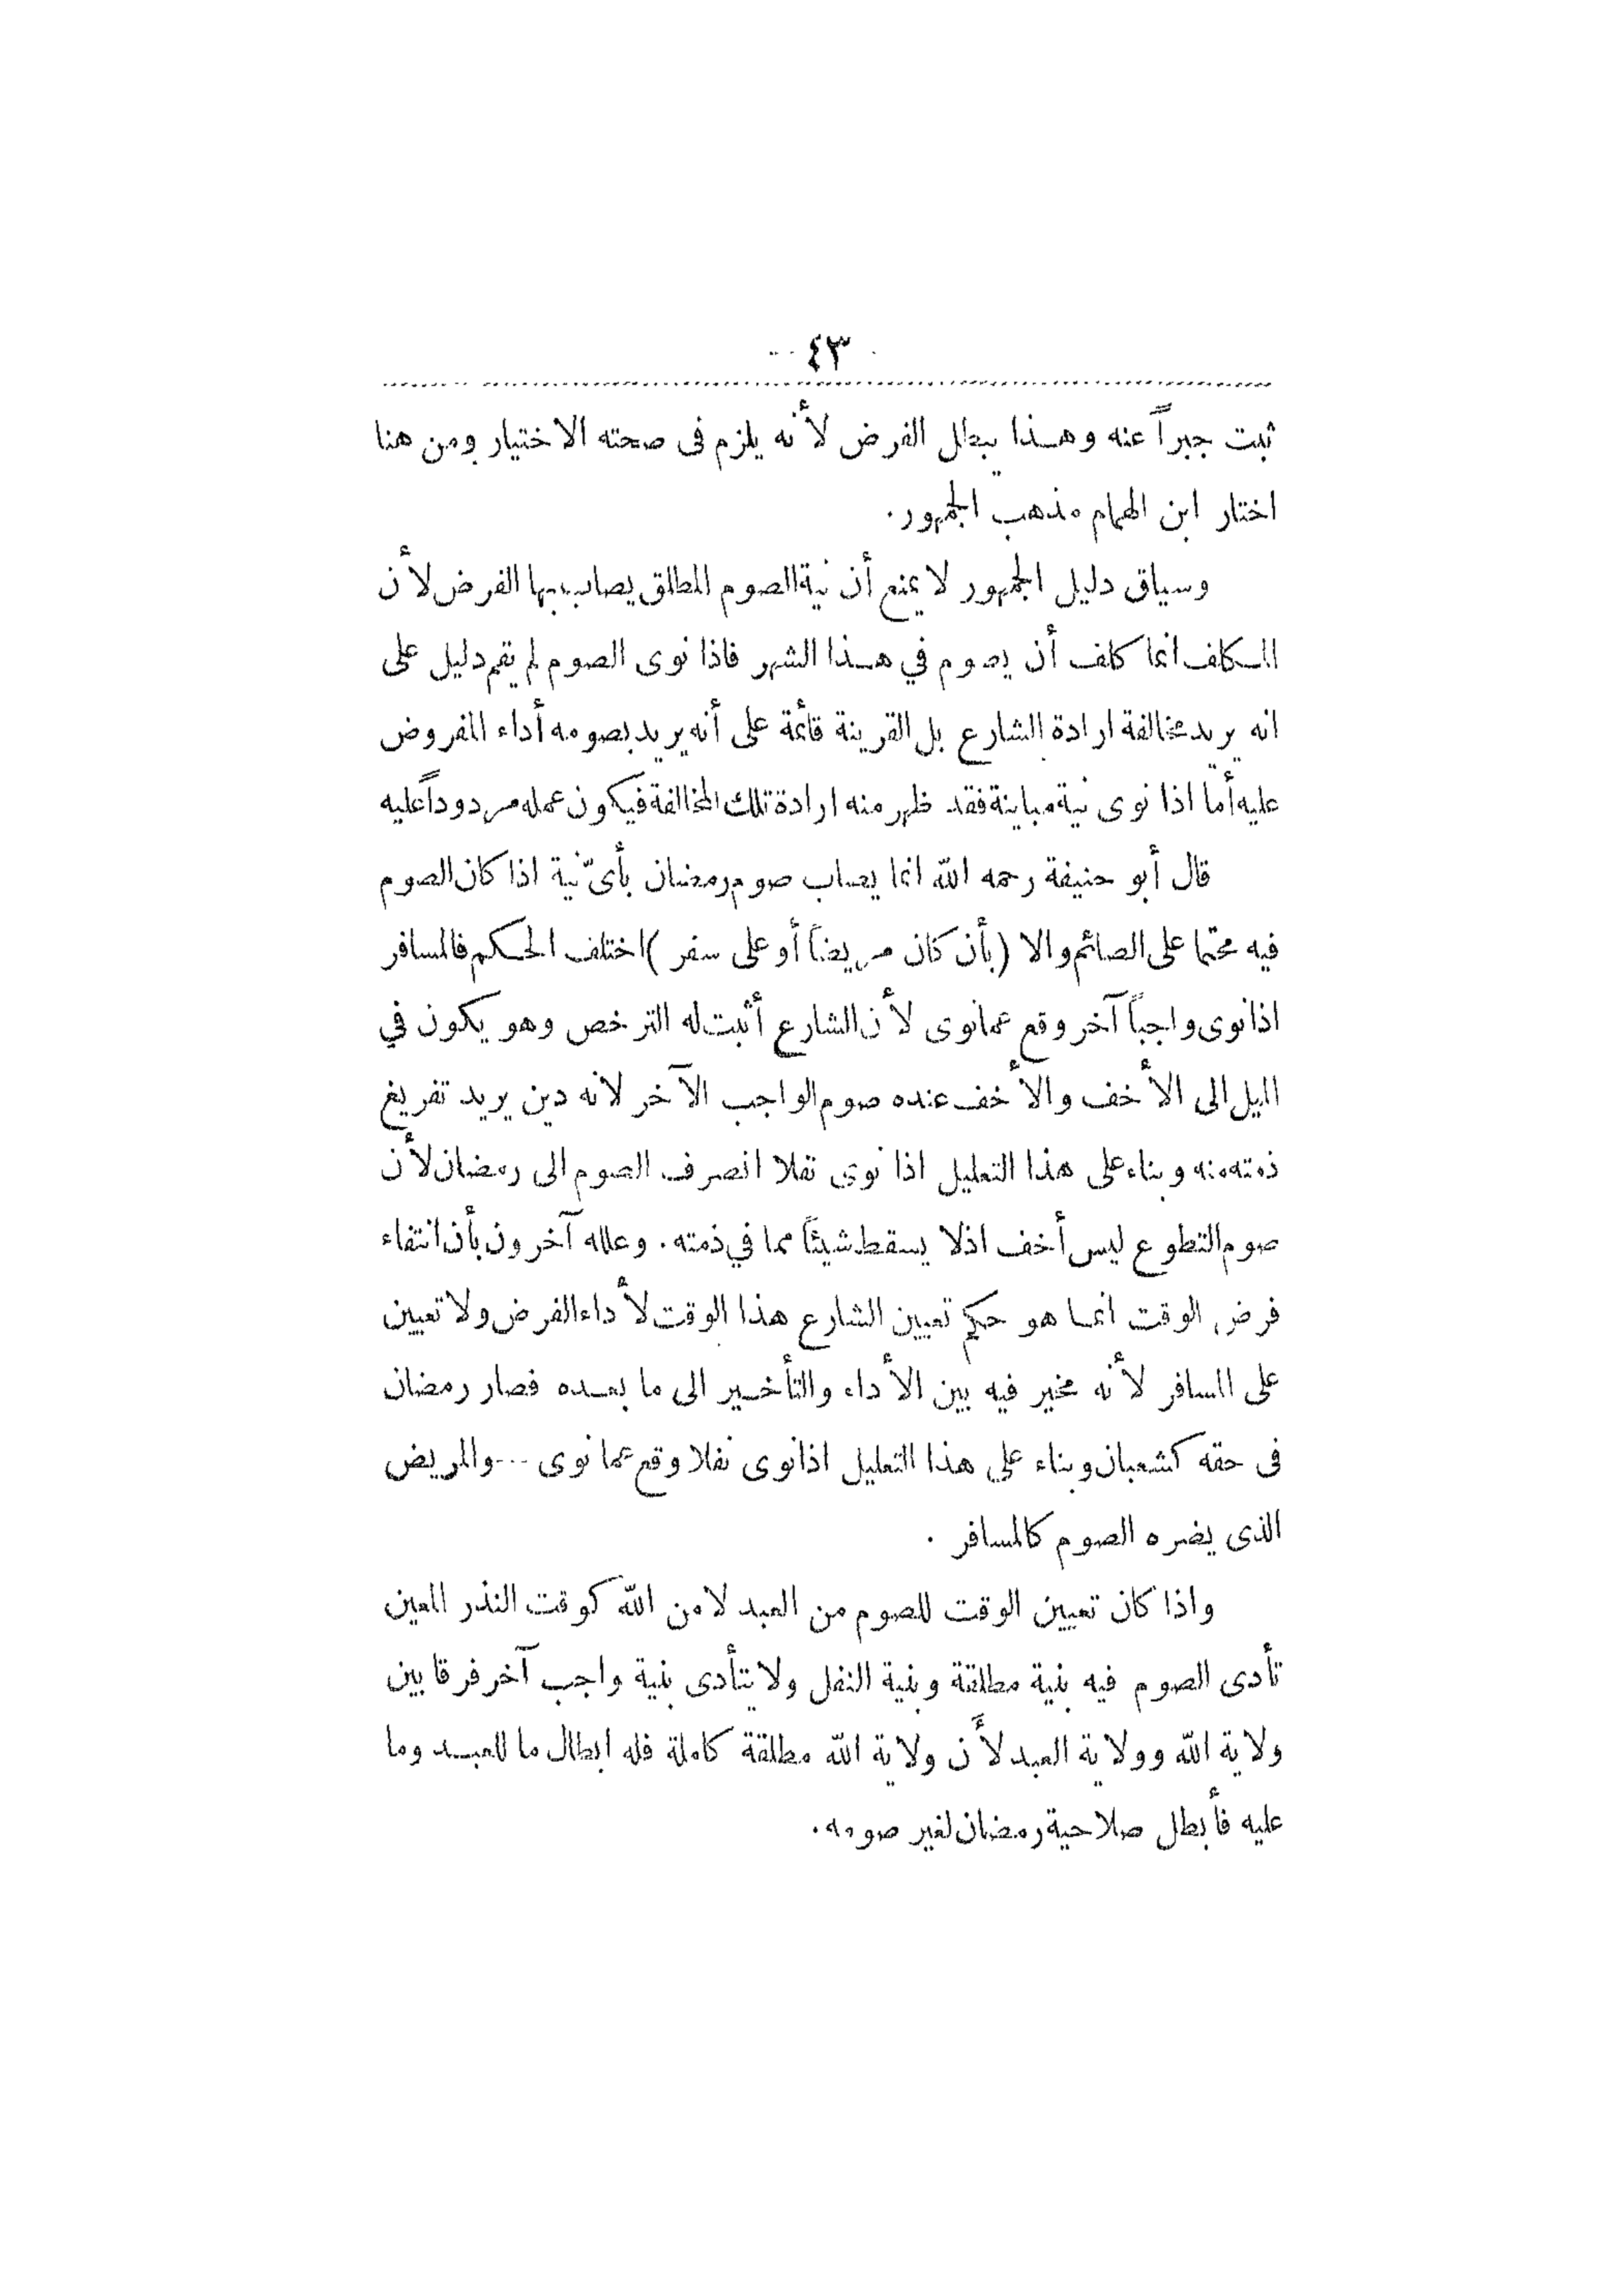 ٤٣
ثبت جبراً عنه وهذا يبطل الفرض لأنه يلزم فى صحته الاختيار ومن هنا
اختار ابن الهمام مذهب الجمهور.
وسياق دليل الجمهور لا يمنع أن نية الصوم المطلق يصاب بها الفرض لأن
المكلف انما كلف أن يصوم في هذا الشهر فاذا نوى الصوم لم يقم دليل على
انه يريد مخالفة ارادة الشارع بل القرينة قائمة على أنه يريد بصومه أداء المفروض
عليه أما اذا نوى نية مباينة فقد ظهر منه ارادة تلك المخالفة فيكون عمله مردوداً عليه
قال أبو حنيفة رحمه الله انما يصاب صوم رمضان بأىّ نية اذا كان الصوم
فيه محتما على الصائم والا (بأن كان مريضاً أو على سفر) اختلف الحكم فالمسافر
اذا نوى واجباً آخر وقع عما نوى لأن الشارع أثبت له الترخص وهو يكون في
الميل الى الأخف والأخف عنده صوم الواجب الآخر لانه دين يريد تفريغ
ذمته منه وبناء على هذا التعليل اذا نوى نفلا انصرف الصوم الى رمضان لأن
صوم التطوع ليس أخف اذ لا يسقط شيئاً مما في ذمته. وعلله آخرون بأن انتفاء
فرض الوقت انما هو حكم تعيين الشارع هذا الوقت لأداء الفرض ولا تعيين
على المسافر لأنه مخير فيه بين الأداء والتأخير الى ما بعده فصار رمضان
فى حقه كشعبان وبناء على هذا التعليل اذا نوى نفلا وقع عما نوى --- والمريض
الذى يضره الصوم كالمسافر .
واذا كان تعيين الوقت للصوم من العبد لا من الله كوقت النذر المعين
تأدى الصوم فيه بنية مطلقة وبنية النفل ولا يتأدى بنية واجب آخر فرقا بين
ولاية الله وولاية العبد لأن ولاية الله مطلقة كاملة فله ابطال ما للعبد وما
عليه فأبطل صلاحية رمضان لغير صومه.